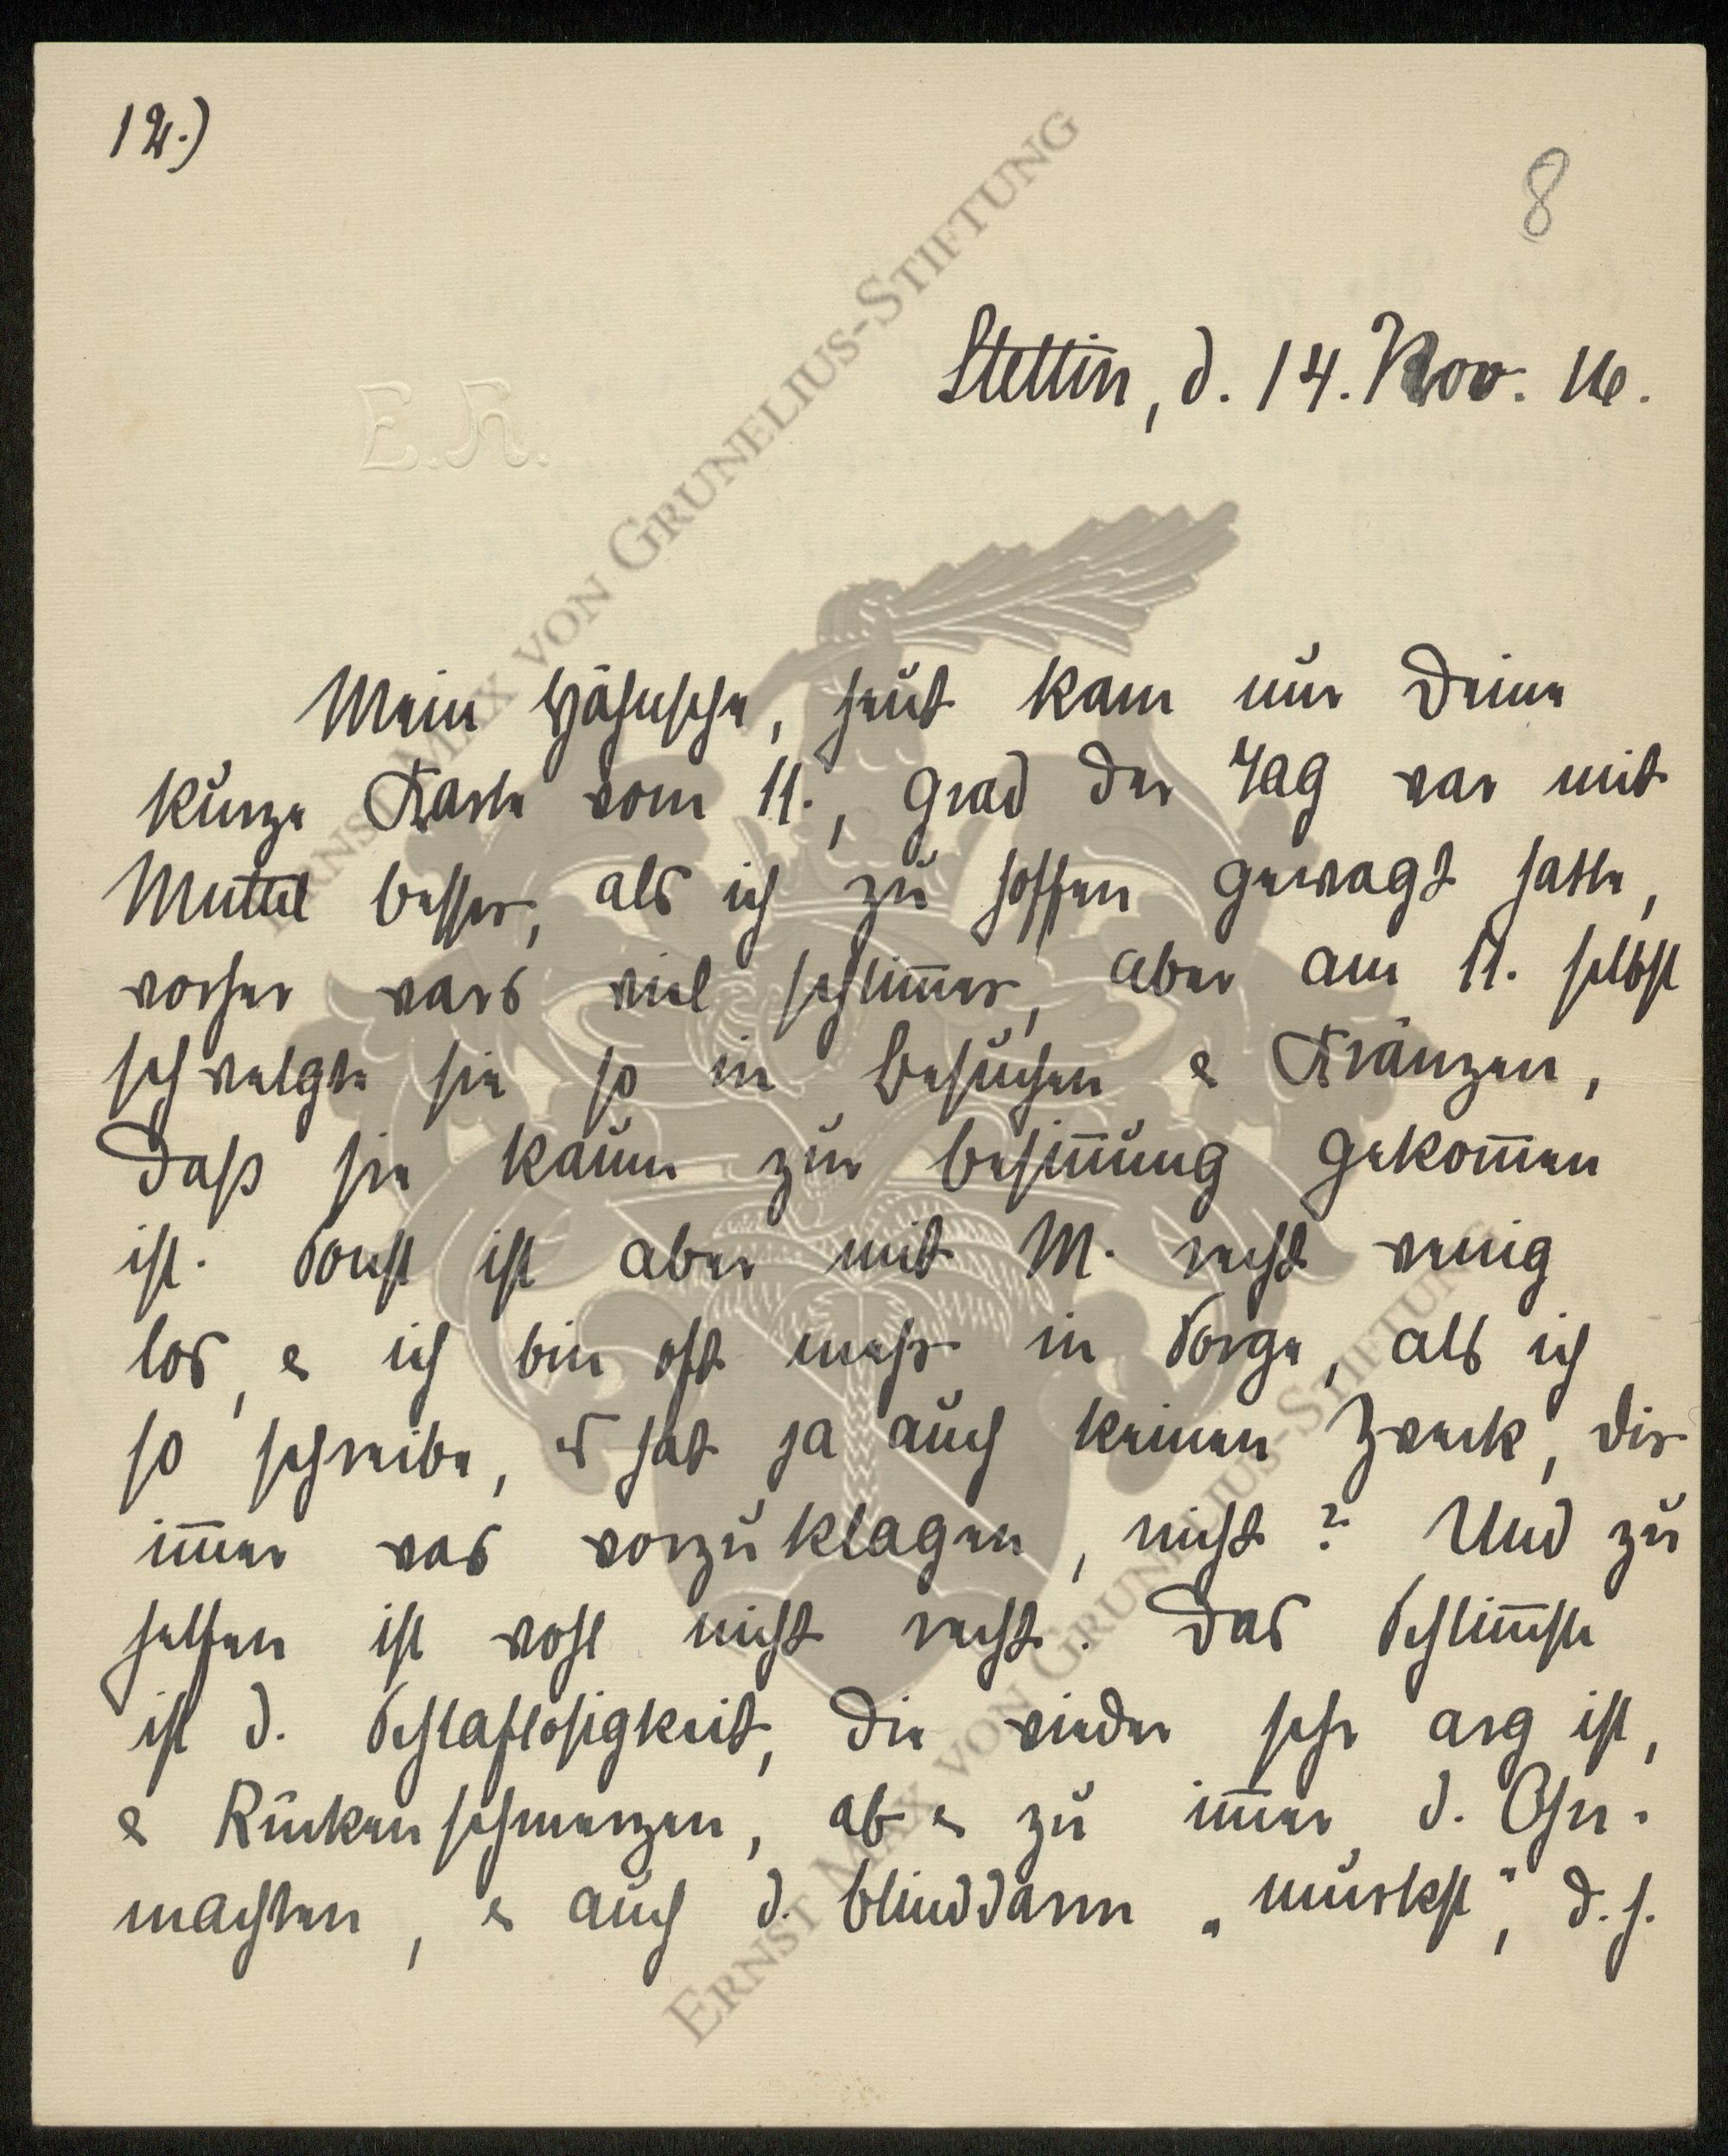 12.)
8
Stettin, d. 14. Nov. 16.
E.K.
Mein Hähnsche, heut kam nur Deine
kurze Karte vom 11., grad der Tag war mit
Muttel besser, als ich zu hoffen gewagt hatte,
vorher wars viel schlimmer, aber am 11. selbst
schwelgte sie so in Besuchen & Kränzen,
daß sie kaum zur Besinnung gekommen
ist. Sonst ist aber mit M. recht wenig
los, & ich bin oft mehr in Sorge, als ich
so schreibe, es hat ja auch keinen Zweck, Dir
immer was vorzuklagen, nicht? Und zu
helfen ist wohl nicht recht. Das Schlimmste
ist d. Schlaflosigkeit, die wieder sehr arg ist,
& Rückenschmerzen, ab & zu immer d. Ohn-
machten, & auch d. Blinddarm „murkst", d.h.
ERNST MAX VON GRUNELIUS-STIFTUNG
ERNST MAX VON GRUNELIUS-STIFTUNG